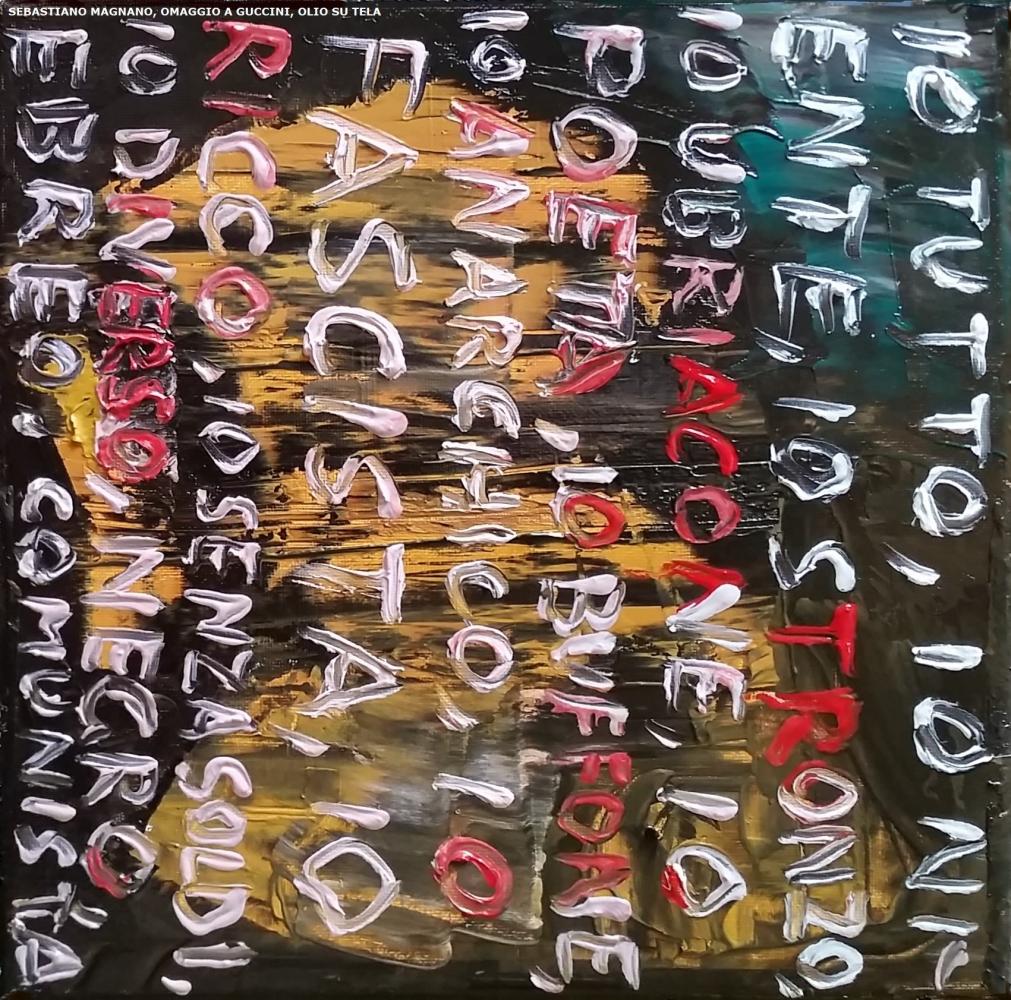 SEBASTIANO MAGNANO, OMAGGIO A GUCCINI, OLIO SU TELA
IO TUTTO, IO NI-
ENTE, IO STRONZO,
IO UBRIACONE, IO
POETA, IO BUFFONE,
IO ANARCHICO, IO
FASCISTA, IO
RICCO, IO SENZA SOLDI,
IO DIVERSO, NEGRO
EBREO, COMUNISTA